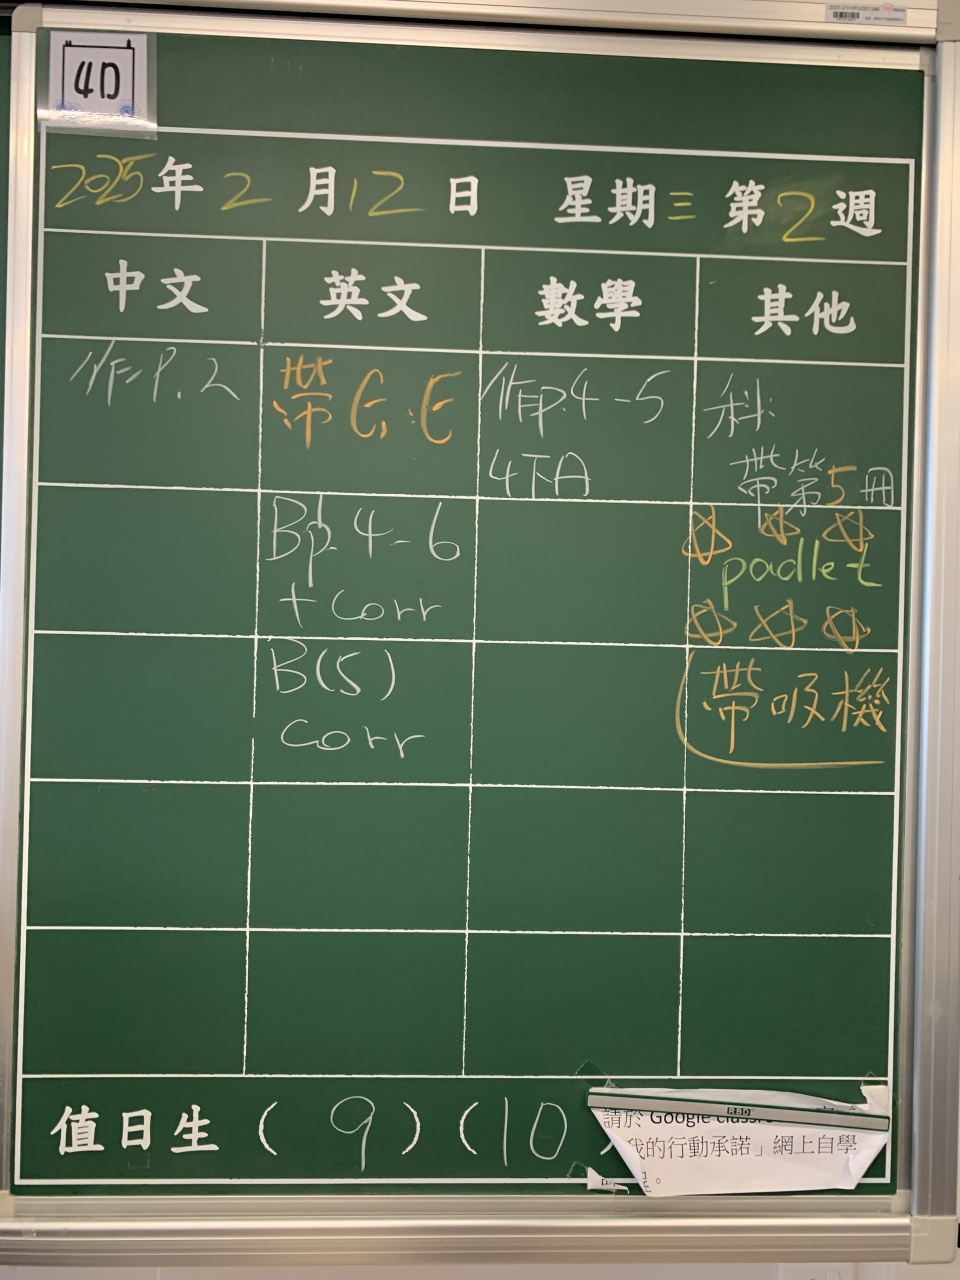 4D
2025年2月12日 星期三 第2週
中文 英文 數學 其他
作P.2
帶G.E
Bp.4-6
+ corr
B(5)
corr
作p.4-5
4下A
科:
帶第5冊
padlet
帶吸機
值日生(9)(10)
RBD
請於 Google
我的行動承諾」網上自學
程。